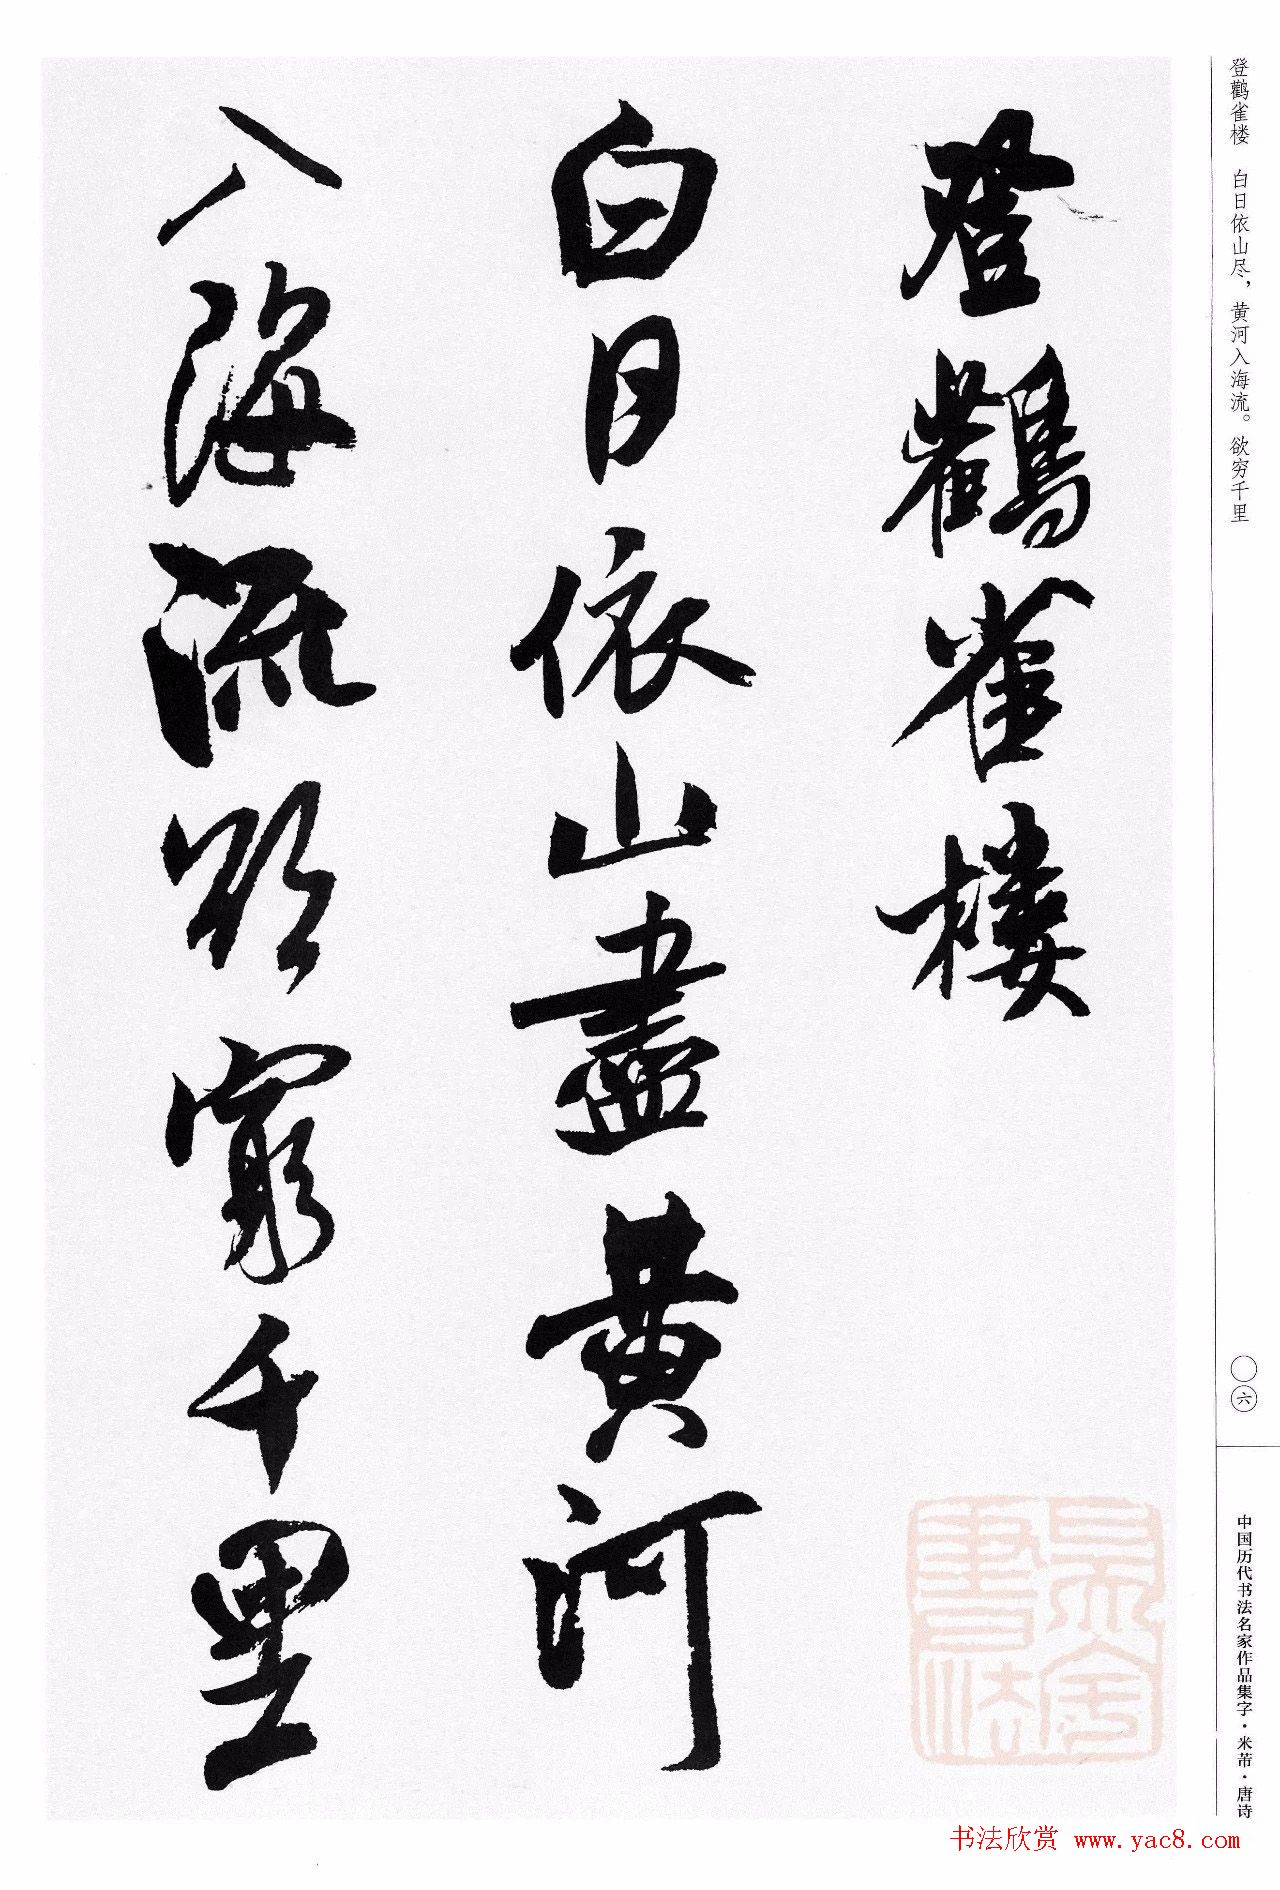 登鹳雀楼　白日依山尽，黄河入海流。欲穷千里
登鸛雀樓
白日依山盡黄河
入海流欲窮千里
〇六
中国历代书法名家作品集字·米芾·唐诗
书法欣赏 www.yac8.com